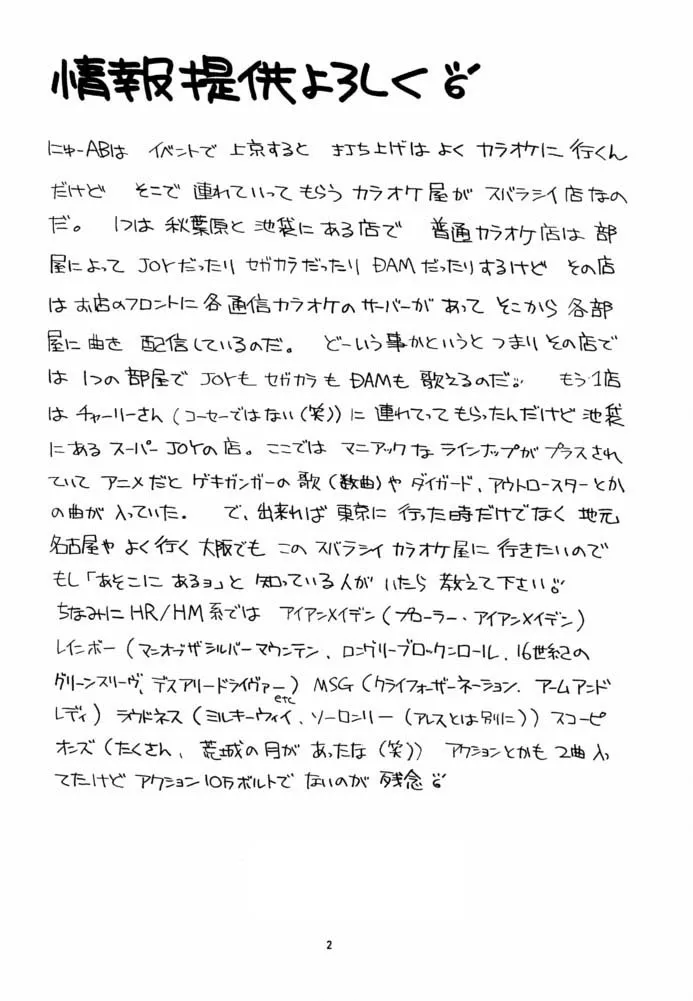 情報提供よろしく
にゅーABは イベントで 上京すると 打ち上げは よく カラオケに 行くん
だけど そこで 連れていって もらう カラオケ屋が スバラシイ店なの
だ。 1つは 秋葉原と 池袋にある店で 普通カラオケ店は 部
屋によって JOYだったり セガカラだったり DAMだったりするけど その店
は お店のフロントに 各通信カラオケの サーバーが あって そこから 各部
屋に 曲を 配信しているのだ。 どーいう事かというと つまり その店で
は 1つの 部屋で JOYも セガカラも DAMも 歌えるのだ。 もう1店
は チャーリーさん(コーセーではない(笑))に 連れてって もらったんだけど 池袋
にある スーパーJOYの店。ここでは マニアックな ラインナップが プラスされ
ていて アニメだと ゲキガンガーの 歌(数曲)や ダイガード、アウトロースターとか
の曲が 入っていた。 で、出来れば 東京に 行った時だけでなく 地元
名古屋や よく行く 大阪でも この スバラシイ カラオケ屋に 行きたいので
もし「あそこに あるョ」と 知っている人が いたら 教えて下さい
ちなみに HR/HM系では アイアンメイデン(プローラー、アイアンメイデン)
レインボー(マンオブザシルバーマウンテン、ロングリーブロックンロール、16世紀の
グリーンスリーヴ、デスアリードライヴァー etc) MSG(クライフォーザーネーション、アームアンド
レディ) ラウドネス(ミルキーウェイ、ソーロンリー(アレスとは別に)) スコーピ
オンズ(たくさん、荒城の月が あったな(笑)) アクションとかも 2曲入っ
てたけど アクション10万ボルトで ないのが 残念
2